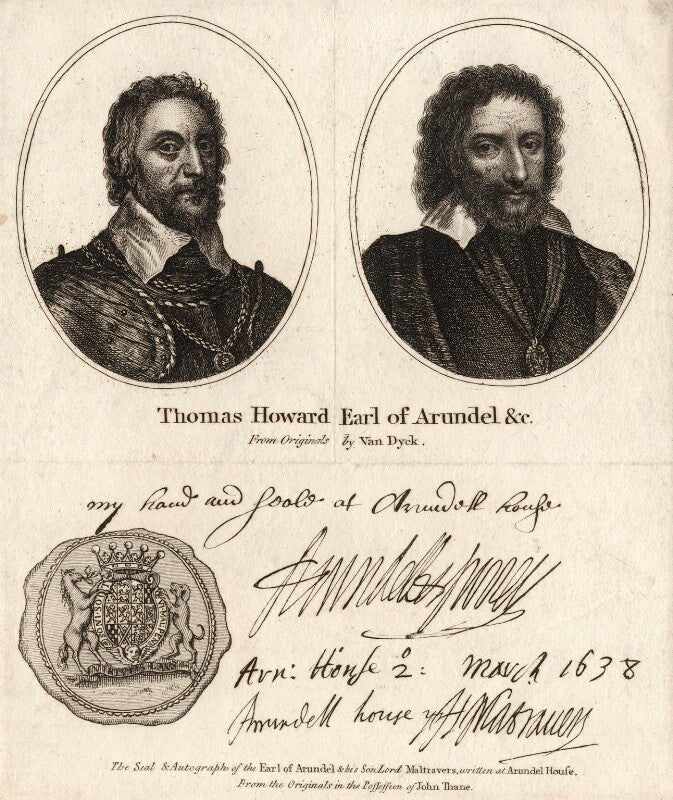 Thomas Howard Earl of Arundel &c.
From Originals by Van Dyck.
my hand and Seale at Arundell house
Arundell & Surrey
Arn: House 2º: March 1638
Arundell house
The Seal & Autographs of the Earl of Arundel & his Son Lord Maltravers, written at Arundel House.
From the Originals in the Poſseſsion of John Thane.